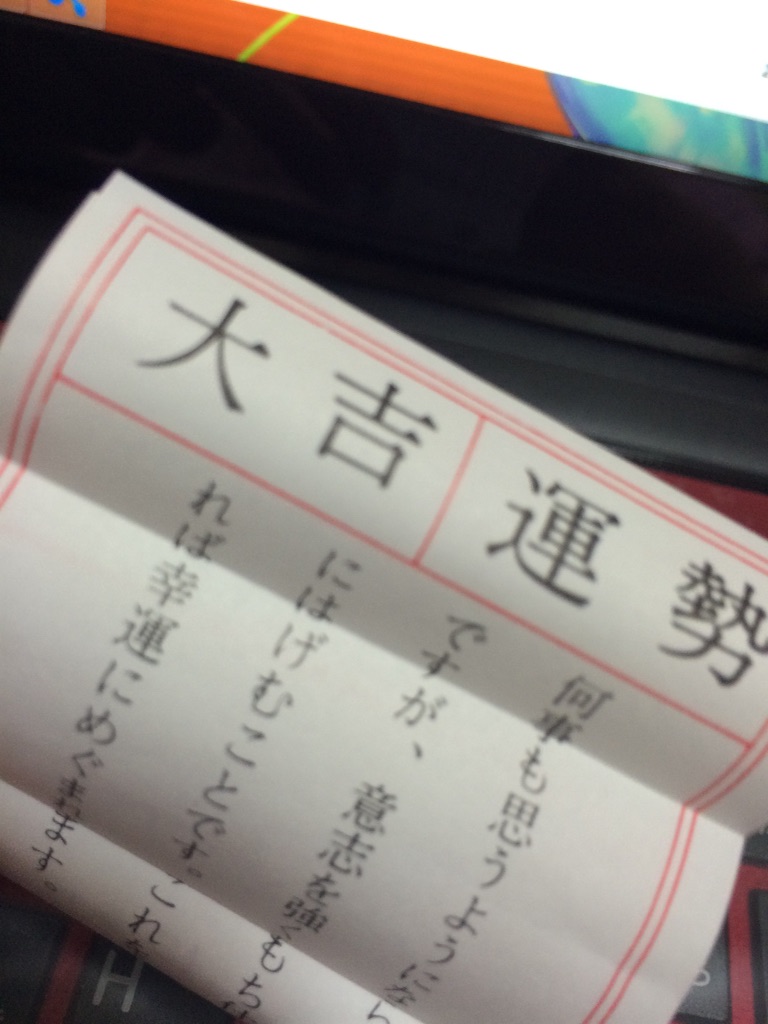 運勢
大吉
何事も思うようになら
ですが、意志を強くもち
にはげむことです。これを
れば幸運にめぐまれます。
H